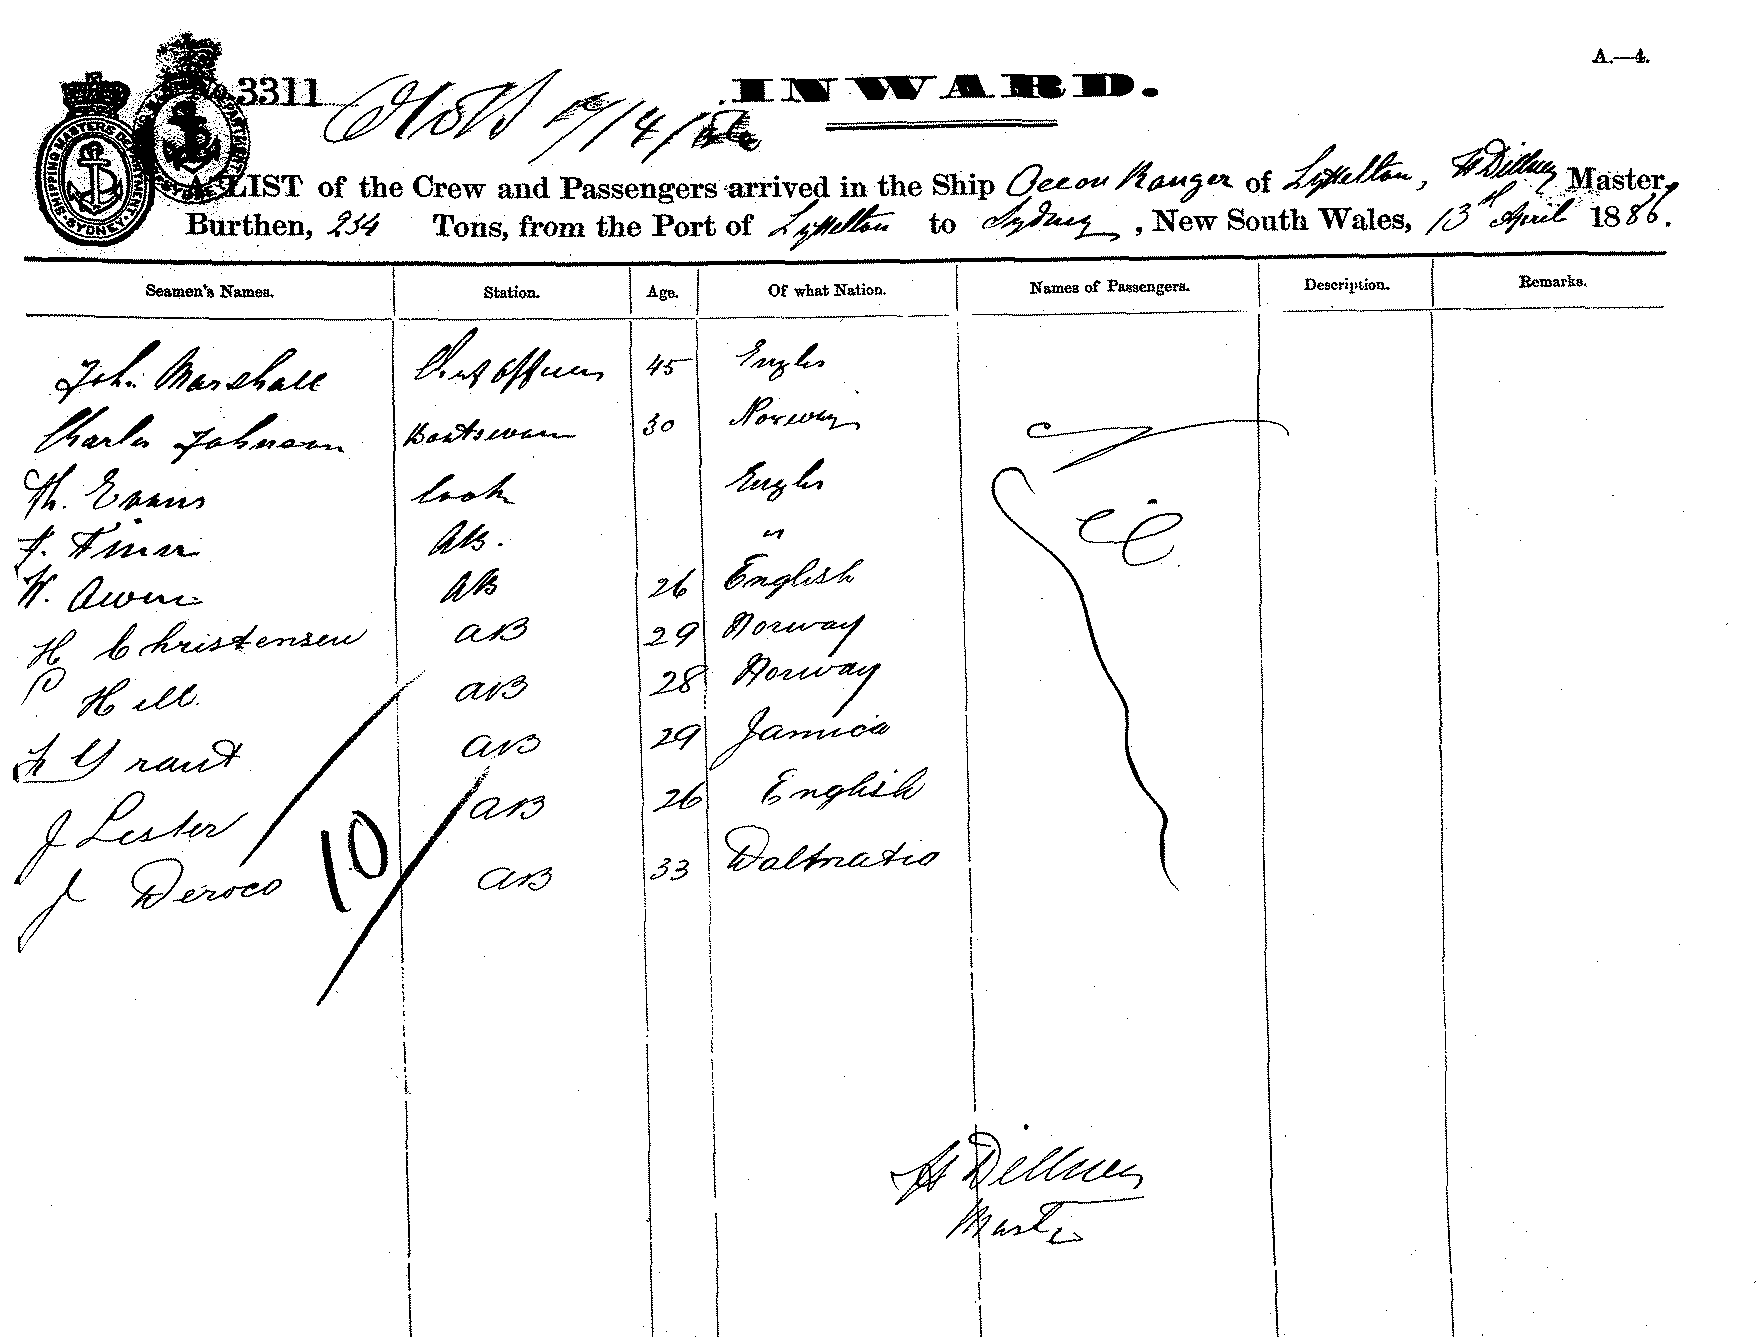 A.—4.
3311
INWARD.
SHIPPING MASTERS DEPARTMENT SYDNEY
A LIST of the Crew and Passengers arrived in the Ship Ocean Ranger of Lyttelton, Master,
Burthen, 234 Tons, from the Port of Lyttelton to Sydney, New South Wales, 13th April 1886.
Seamen's Names. Station. Age. Of what Nation. Names of Passengers. Description. Remarks.
John Marshall Chief Officer 45 Englis
Charles Johnson Boatswain 30 Norway
Th. Evans Cook Englis
AB. "
W. Owen AB 26 English
H Christensen AB 29 Norway
P Hill. AB 28 Norway
Grant AB 29 Jamica
J Lester AB 26 English
J Deroco AB 33 Dalmatio
10
Master